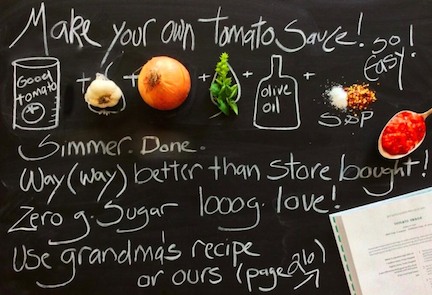 Make your own Tomato Sauce!
so! easy!
Good tomato + + + + olive oil + S&P
Simmer. Done.
Way (way) better than store bought!
Zero g. Sugar 1000g. love!
Use grandma's recipe
or ours (page 26)